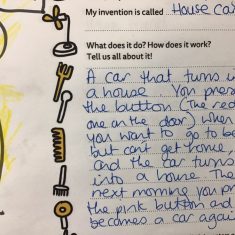 My invention is called House Car
What does it do? How does it work?
Tell us all about it!
A car that turns in
a house. You press
the button (The red
one on the door) when
you want to go to be
but can't get home
and the car turns
into a house. The
next morning you pr
the pink button and
becomes a car again